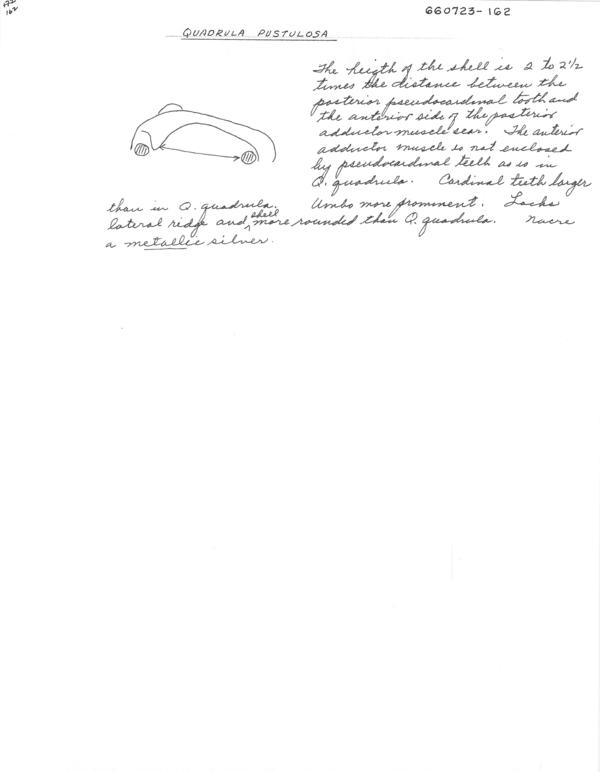 172
162
660723-162
QUADRULA PUSTULOSA
The heigth of the shell is 2 to 2 1/2
times the distance between the
posterior pseudocardinal tooth and
the anterior side of the posterior
adductor muscle scar. The anterior
adductor muscle is not enclosed
by pseudocardinal teeth as is in
Q. quadrula. Cardinal teeth larger
than in Q. quadrula. Umbo more prominent. Lacks
lateral ridge and shell more rounded than Q. quadrula. Nacre
a metallic silver.